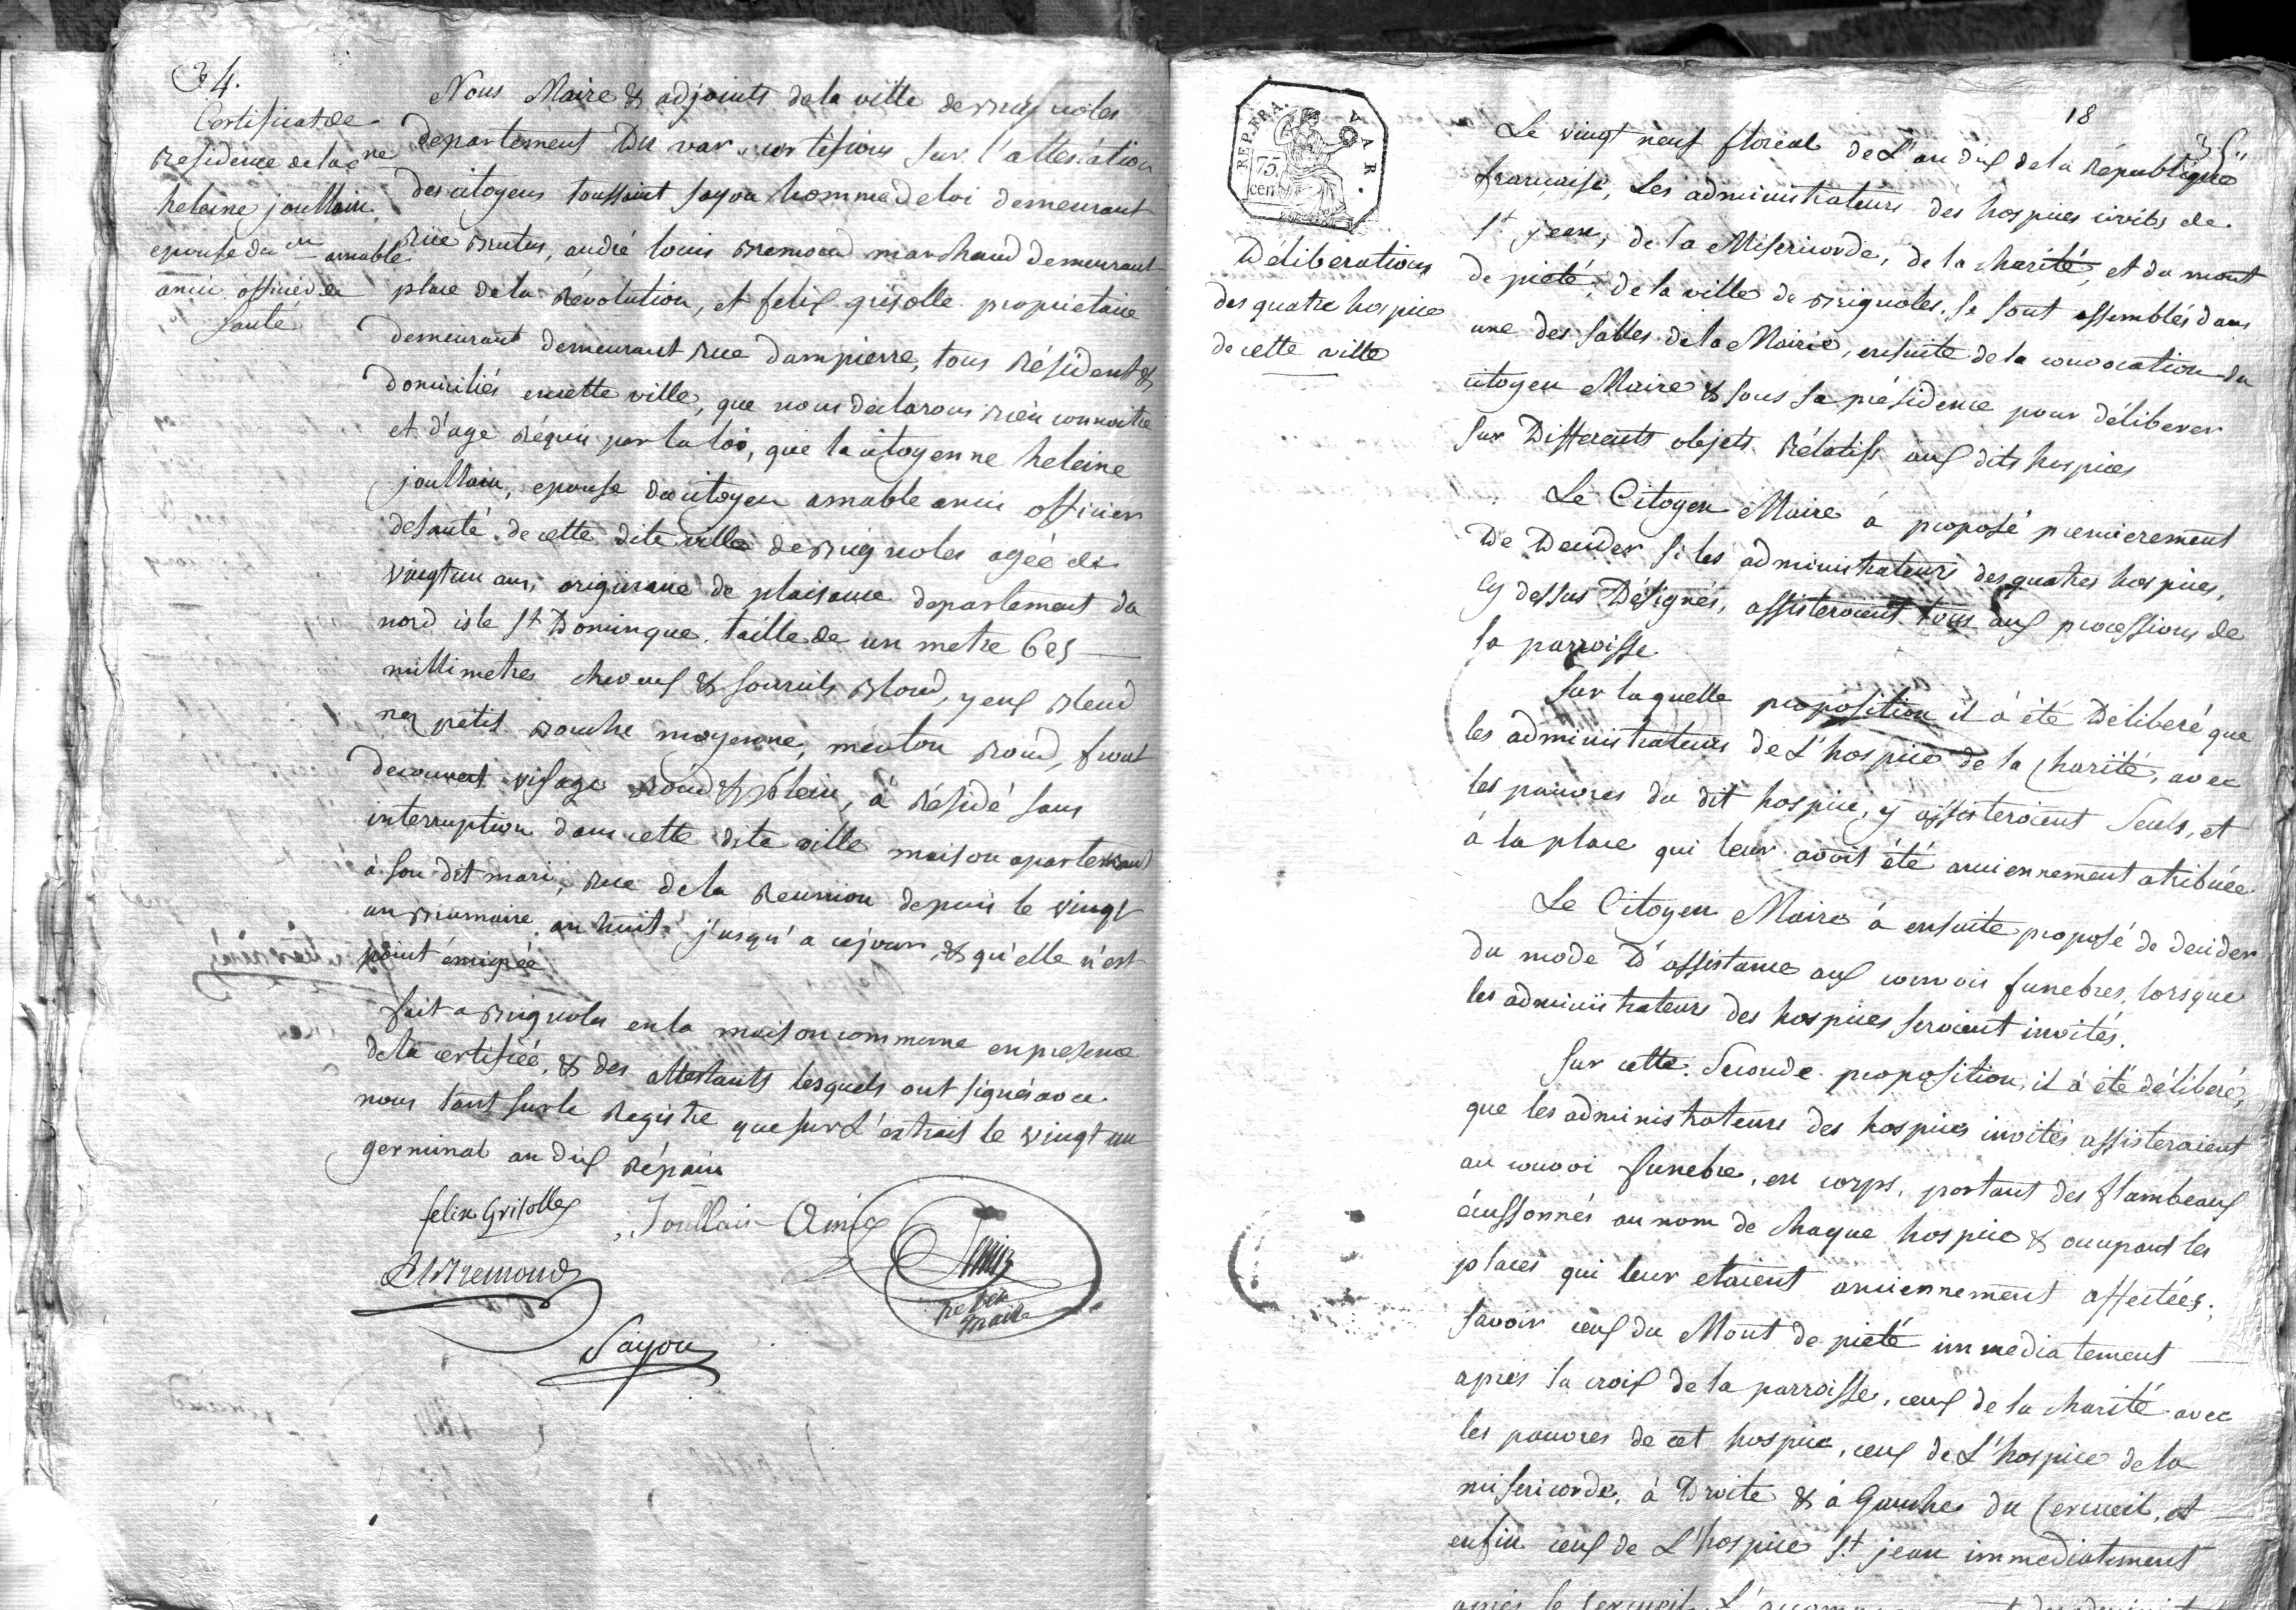 34.
Certificat de
Residence de la c.ne
heleine joullain,
epouse du c.en amable
amic officier de
santé
Nous Maire & adjoints de la ville de Brignoles
departement Du var, certifions sur l'attestation
des citoyens toussaint sayou homme de loi demeurant
Rue Brutus, andré louis Bremond marchand demeurant
place de la Révolution, et felix grisolle proprietaire
demeurant demeurant Rue dampierre, tous Résident &
domiciliés en cette ville, que nous declarons Bien connoitre
et d'age Réquis par la loi, que la citoyenne heleine
joullain, epouse du citoyen amable amic officier
de santé de cette dite ville de Brignoles agée de
vingt un ans, originaire de plaisance departement du
nord isle St Domingue. taille de un metre 625
millimetres cheveux & sourcils Blond, yeux Bleud
nez petit Bouche moyenne, menton Rond, front
decouvert visage Rond & plein, à Résidé sans
interruption dans cette dite ville maison apartenant
à son dit mari, Rue de la Reunion depuis le vingt
un Brumaire an huit jusqu'a ce jour, & qu'elle n'est
point émigrée
fait a Brignoles en la maison commune en presence
de la certifiée, & des attestants lesquels ont signés avec
nous tant sur le Registre que sur L'extrait le vingt un
germinal an dix Répain
felix Grisolle
Joullain Amic
ALBremond
Sayou
maire
REP. FRA.
VAR.
75.
cent
18
35
Déliberations
des quatre hospice
de cette ville
Le vingt neuf floréal de L'an dix de la République
française, Les administrateurs des hospices civils de
St jean, de la Misericorde, de la charité, et du mont
de pieté, de la ville de Brignoles, se sont assemblés dans
une des salles de la Mairie, ensuite de la convocation du
citoyen Maire & sous sa présidence pour déliberer
sur Differents objets Rélatifs aux dits hospices
Le Citoyen Maire à proposé premierement
De Decider si les administrateurs des quatres hospices,
Cy dessus Désignés, assisteroient tous aux processions de
la parroisse.
Sur laquelle proposition il à été Déliberé que
les administrateurs de L'hospice de la Charité, avec
les pauvres du dit hospice, y assisteroient seuls, et
à la place qui leur avoit été anciennement atribuée
Le Citoyen Maire à ensuite proposé de decider
du mode D'assistance aux convois funebres, lorsque
les administrateurs des hospices seroient invités.
Sur cette Seconde proposition, il à été déliberé,
que les administrateurs des hospices invités assisteraient
au convoi funebre, en corps, portant des flambeaux
écussonnés au nom de chaque hospice & occupant les
places qui leur etaient anciennement affectées;
savoir ceux du Mont de pieté immediatement
après la croix de la parroisse, ceux de la charité avec
les pauvres de cet hospice, ceux de L'hospice de la
misericorde, à Droite & à Gauche du Cercueil, et
enfin ceux de L'hospice St jean immediatement
après le Cercueil.